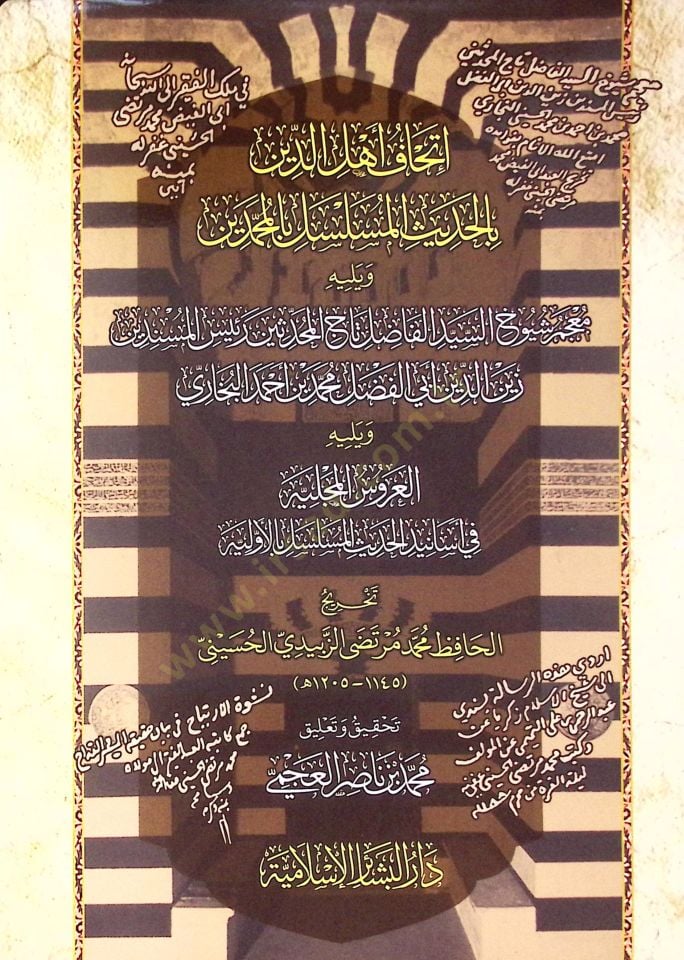 في ملك الفقير إلى الله سبحانه
أبي الفيض محمد مرتضى
الحسيني غفر له
بمنه
آمين
معجم شيوخ السيد الفاضل تاج المحدثين
رئيس المسندين زين الدين أبي الفضل
محمد بن أحمد بن محمد الحسيني البخاري
إتحاف أهل الدين
بالحديث المسلسل بالمحمدين
ويليه
معجم شيوخ السيد الفاضل تاج المحدثين رئيس المسندين
زين الدين أبي الفضل محمد بن أحمد البخاري
ويليه
العروس المجلية
في أسانيد الحديث المسلسل بالأولية
تخريج
الحافظ محمد مرتضى الزبيدي الحسيني
(١١٤٥ - ١٢٠٥هـ)
تحقيق وتعليق
محمد بن ناصر العجمي
دار البشائر الإسلامية
نشوة الارتياح في بيان حقيقة الميسر والقداح
اروي هذه الرسالة بسندي
الى شيخ الاسلام زكريا عن